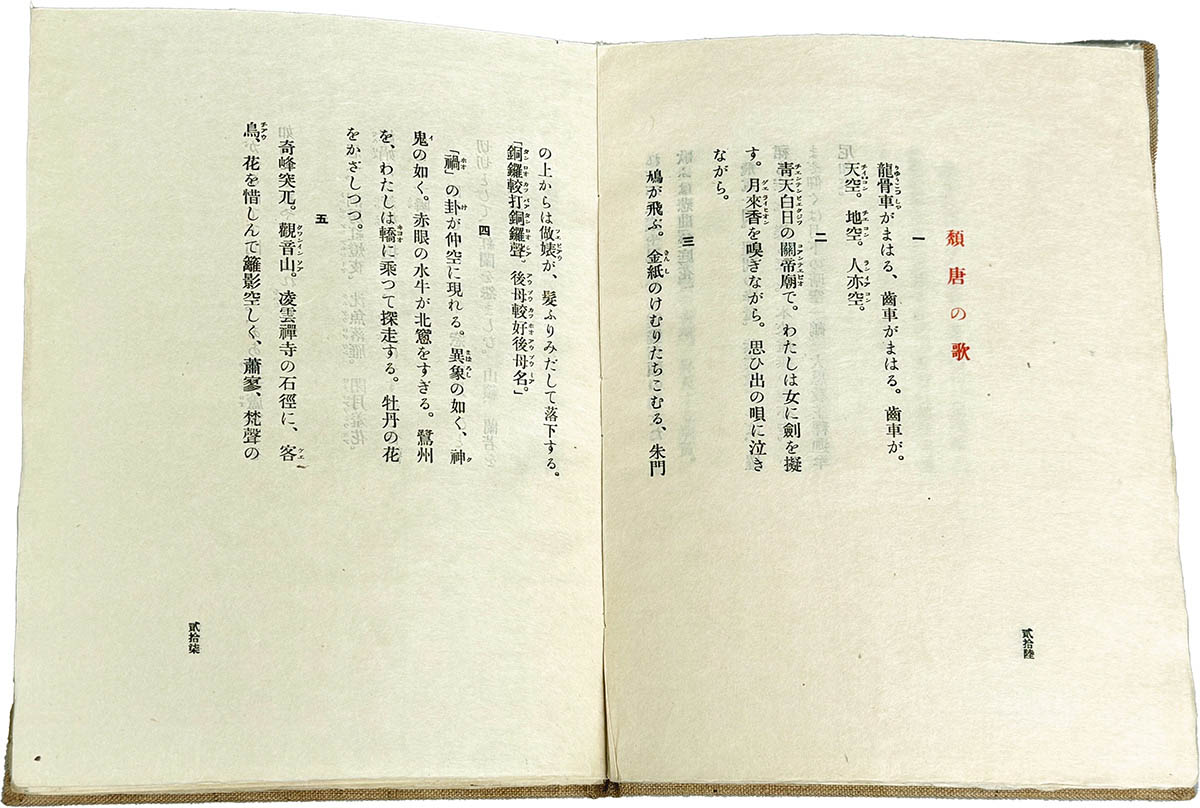 頽唐の歌
一
龍骨車がまはる、齒車がまはる。齒車が。
天空。地空。人亦空。
二
靑天白日の關帝廟で。わたしは女に劍を擬
す。月來香を嗅ぎながら。思ひ出の唄に泣き
ながら。
三
鳩が飛ぶ。金紙のけむりたちこむる、朱門
貳拾陸
の上からは做婊が、髮ふりみだして落下する。
「銅鑼較打銅鑼聲、後母較好後母名。」
四
「禍」の卦が仲空に現れる。異象の如く、神
鬼の如く。赤眼の水牛が北窓をすぎる。鷺州
を、わたしは轎に乘つて探走する。牡丹の花
をかざしつつ。
五
奇峰突兀。觀音山。凌雲禪寺の石徑に、客
鳥、花を惜しんで籬影空しく、蕭寥、梵聲の
貳拾柒